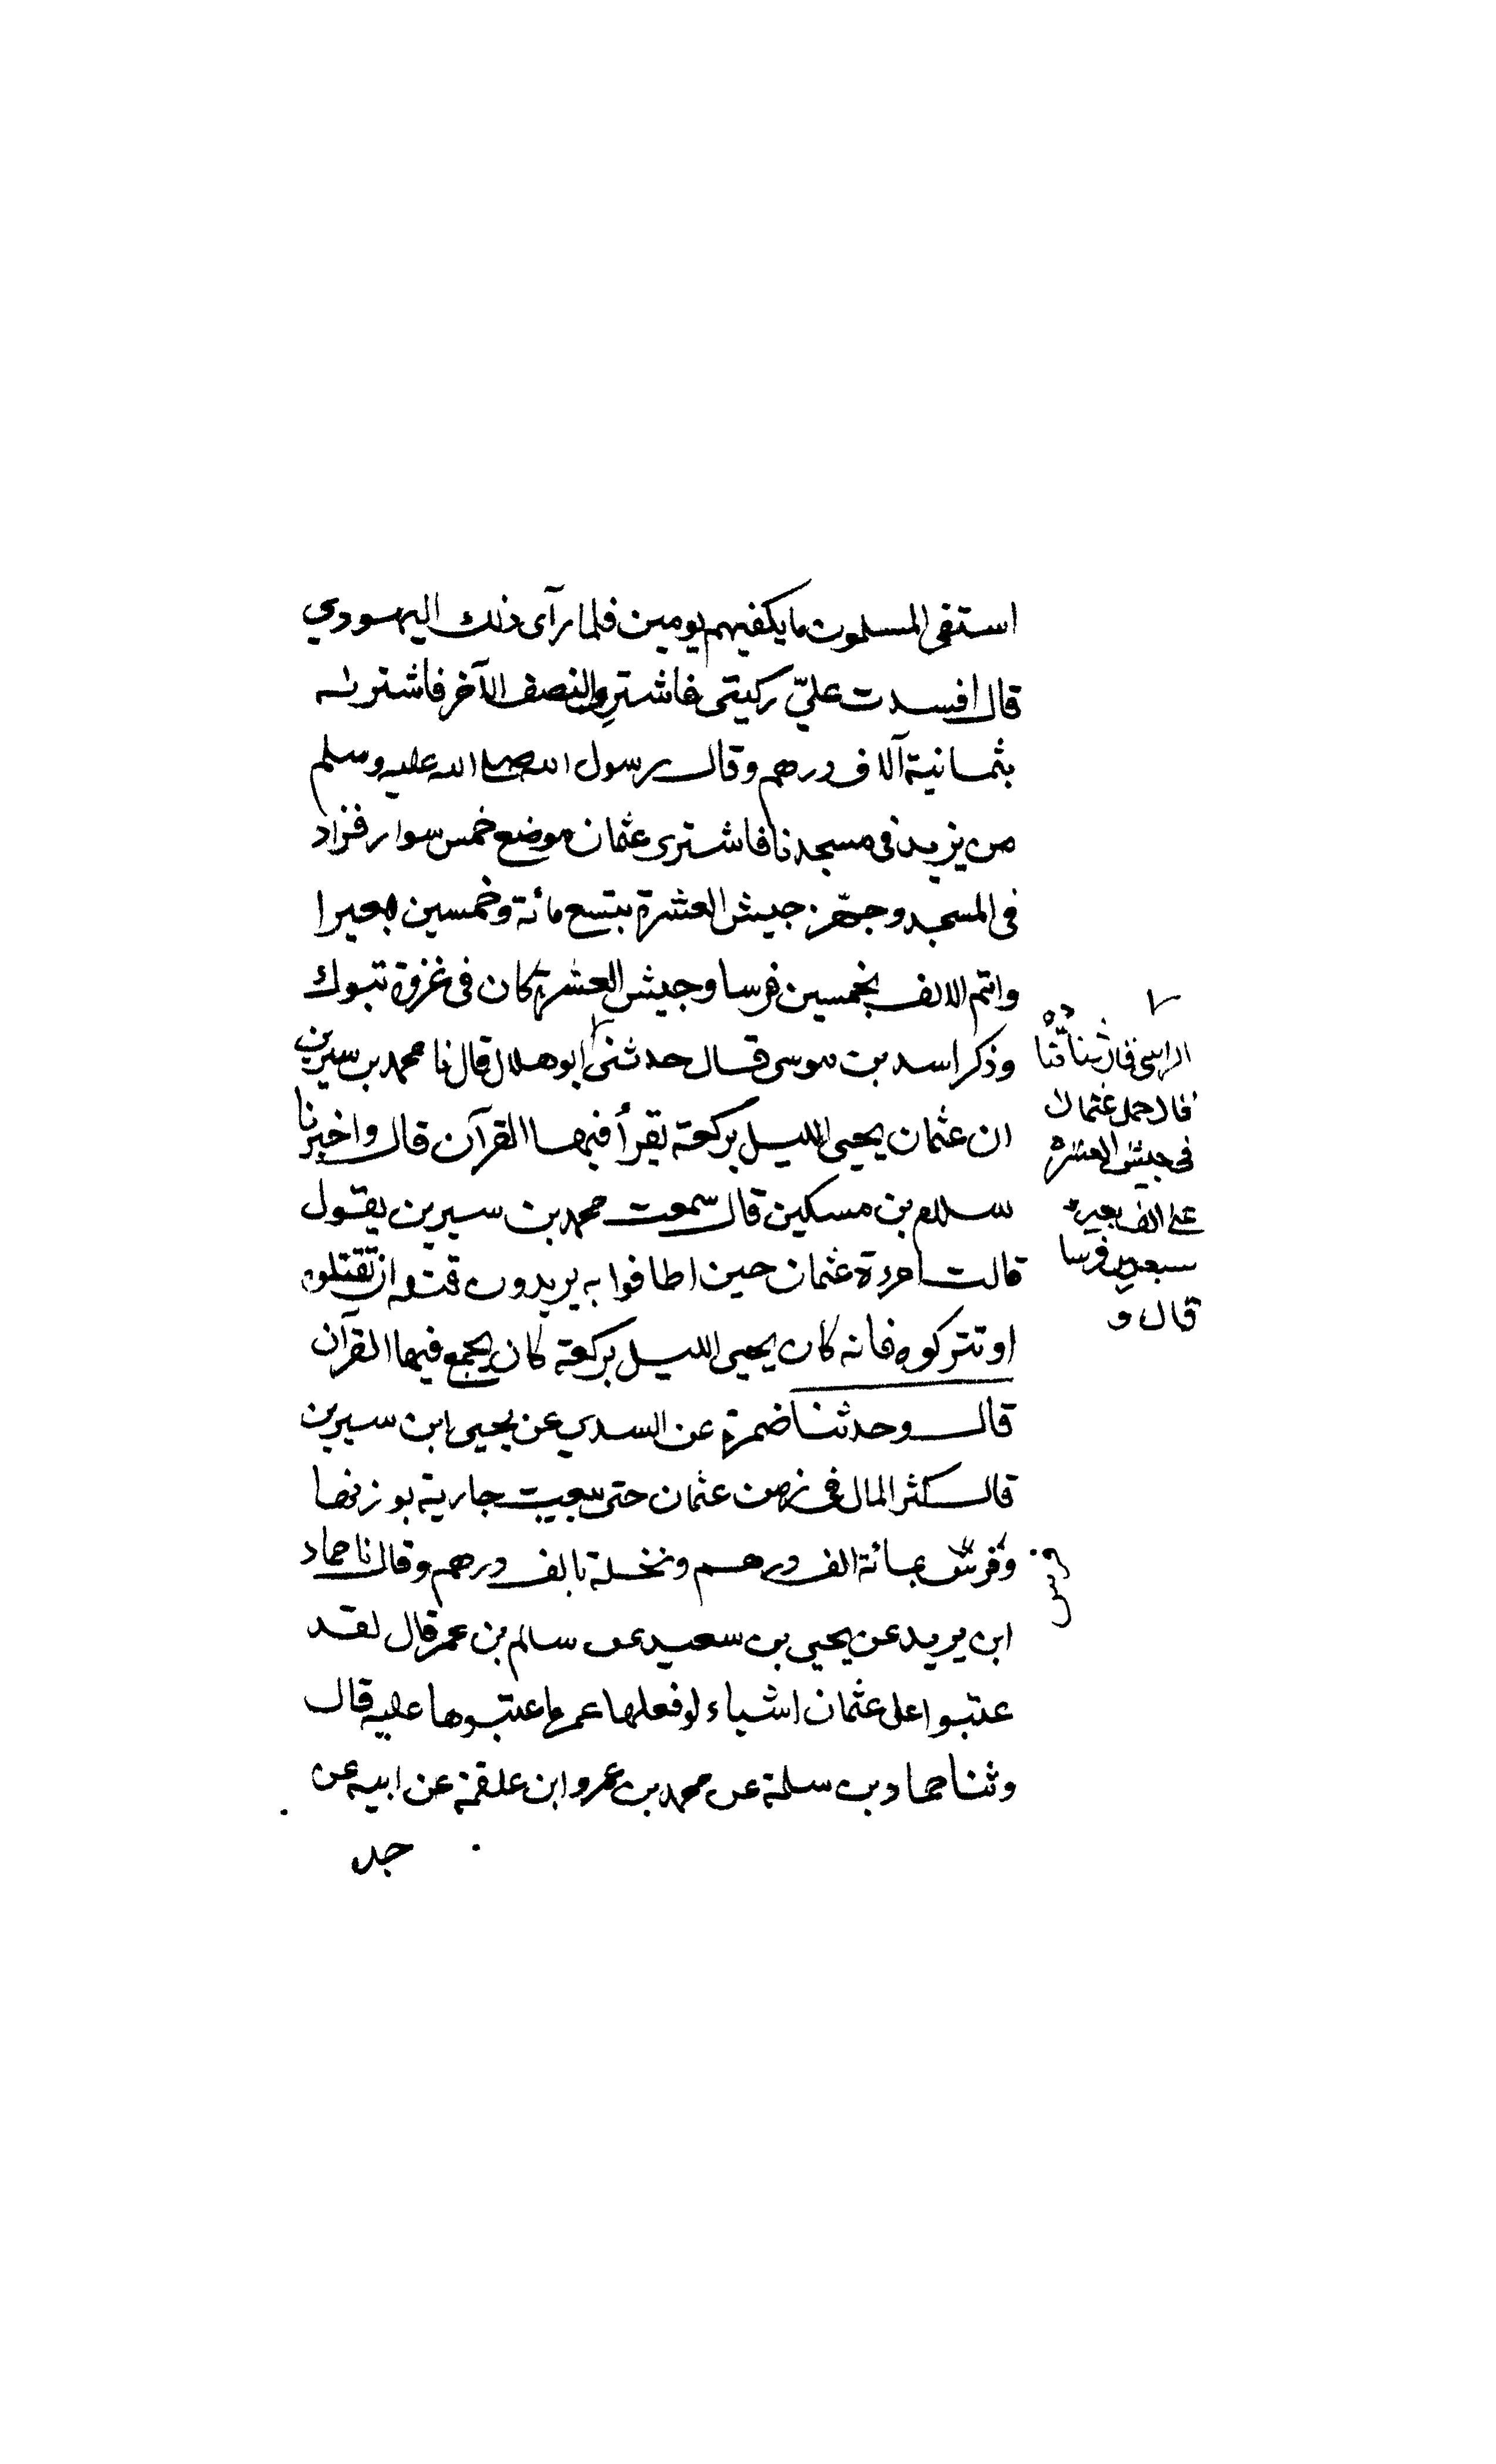 استقى المسلمون ما يكفيهم يومين فلما رآى ذلك اليهودي
قال افسدت عليّ ركيتي فاشتر والنصف الآخر فاشتراه
بثمانية آلاف درهم وقال رسول الله صلى الله عليه وسلم
من يزيد في مسجدنا فاشترى عثمان موضع خمس سوار فزاد
في المسجد وجهّز جيش العشرة بتسع مائة وخمسين بعيرا
واتم الالف بخمسين فرسا وجيش العشرة كان في غزوة تبوك
وذكر اسد بن موسى قال حدثنى ابو هلال قال نا محمد بن سيرين
ان عثمان يحيى الليل بركعة يقرأ فيها القرآن قال واخبرنا
سلام بن مسكين قال سمعت محمد بن سيرين يقول
قالت امرءة عثمان حين اطافوا به يريدون قتله ان تقتلوه
او تتركوه فانه كان يحيى الليل بركعة كان يجمع فيها القرآن
قال وحدثنا ضمرة عن السدي عن يحيى ابن سيرين
قال كثر المال في زمن عثمان حتى بيعت جارية بوزنها
وفرس بمائة الف درهم ونخلة بالف درهم وقال نا حماد
ابن يريد عن يحيى بن سعيد عن سالم بن عمر قال لقد
عتبوا على عثمان اشياء لو فعلها عمر ما عتبوها عليه قال
وثنا حماد بن سلمة عن محمد بن عمرو ابن علقمة عن ابيه عن
جد
الراسبي قال ثنا قتادة
قال حمل عثمان
في جيش العشرة
على الف بعير و
سبعين فرسا
قال و
فرس